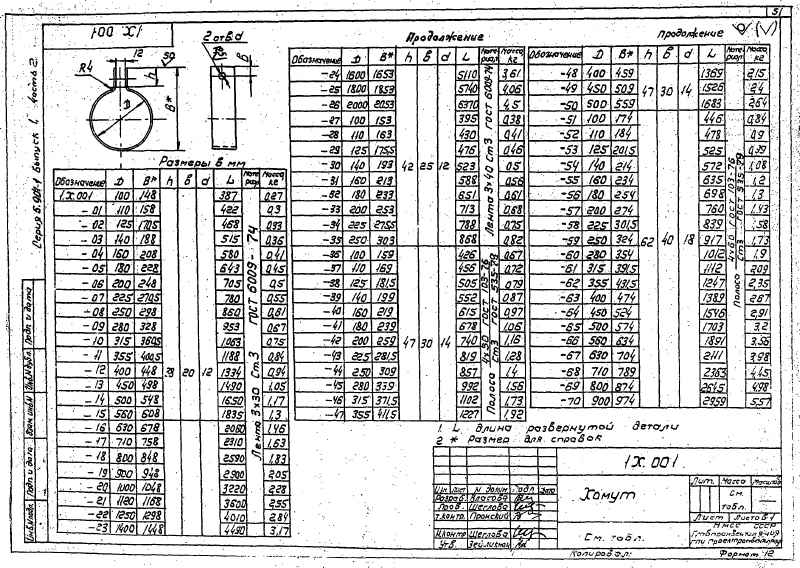 5
1X 001
Серия 5.904-1 Выпуск 1 часть 2
12
50
R4
h
D
B*
2 отв. d
Размеры в мм
Обозначение D B* h в d L Материал Масса кг
1.X.001 100 148 38 20 12 387 Лента 3х30 Ст.3 ГОСТ 6009-74 0,27
-01 110 158 422 0,3
-02 125 170,5 468 0,93
-03 140 188 515 0,36
-04 160 208 580 0,41
-05 180 228 643 0,45
-06 200 248 705 0,5
-07 225 270,5 780 0,55
-08 250 298 860 0,61
-09 280 328 953 0,67
-10 315 360,5 1063 0,75
-11 355 400,5 1188 0,84
-12 400 448 1334 0,94
-13 450 498 1490 1,05
-14 500 548 1650 1,17
-15 560 608 1835 1,3
-16 630 678 2060 1,46
-17 710 758 2310 1,63
-18 800 848 2590 1,83
-19 900 948 2900 2,05
-20 1000 1048 3220 2,28
-21 1120 1168 3600 2,55
-22 1250 1298 4010 2,84
-23 1400 1448 4490 3,17
Продолжение
Обозначение D B* h в d L Материал Масса кг
-24 1600 1653 42 25 12 5110 Лента 3х40 Ст.3 ГОСТ 6009-74 3,61
-25 1800 1853 5740 4,06
-26 2000 2053 6370 4,5
-27 100 153 395 0,38
-28 110 163 430 0,41
-29 125 175,5 476 0,46
-30 140 193 523 0,5
-31 160 213 588 0,56
-32 180 233 651 0,61
-33 200 253 713 0,68
-34 225 275,5 788 0,75
-35 250 303 868 0,82
-36 100 159 47 30 14 426 Полоса 4х30 ГОСТ 103-76 Ст3 ГОСТ 535-79 0,67
-37 110 169 456 0,72
-38 125 181,5 505 0,79
-39 140 199 552 0,87
-40 160 219 615 0,97
-41 180 239 678 1,06
-42 200 259 740 1,16
-43 225 281,5 819 1,28
-44 250 309 857 1,4
-45 280 339 992 1,56
-46 315 371,5 1102 1,73
-47 355 411,5 1227 1,92
продолжение
Обозначение D B* h в d L Материал Масса кг
-48 400 459 47 30 14 1369 2,15
-49 450 509 1526 2,4
-50 500 559 1683 2,64
-51 100 174 62 40 18 446 Полоса 4х60 ГОСТ 103-76 Ст3 ГОСТ 535-79 0,84
-52 110 184 478 0,9
-53 125 201,5 525 0,99
-54 140 214 572 1,08
-55 160 234 635 1,2
-56 180 254 698 1,3
-57 200 274 760 1,43
-58 225 301,5 839 1,58
-59 250 324 917 1,73
-60 280 354 1012 1,9
-61 315 391,5 1112 2,09
-62 355 431,5 1247 2,35
-63 400 474 1389 2,67
-64 450 524 1546 2,91
-65 500 574 1703 3,2
-66 560 634 1891 3,56
-67 630 704 2111 3,98
-68 710 789 2363 4,45
-69 800 874 2645 4,98
-70 900 974 2959 5,57
1. L длина развернутой детали
2 * Размер для справок
1X.001
Хомут
Лит. Масса Масштаб
См. табл.
Лист Листов 1
ММСС СССР
См. табл.
Изм Лист N докум. Подп. Дата
Разраб. Власова
Пров. Щеглова
Т.контр. Пронский
Н.контр Щеглова
Утв. Зейликман
Копировал:
Формат 12
Инв.N подл. Подп. и дата Взам. инв.N Инв.N дубл. Подп. и дата